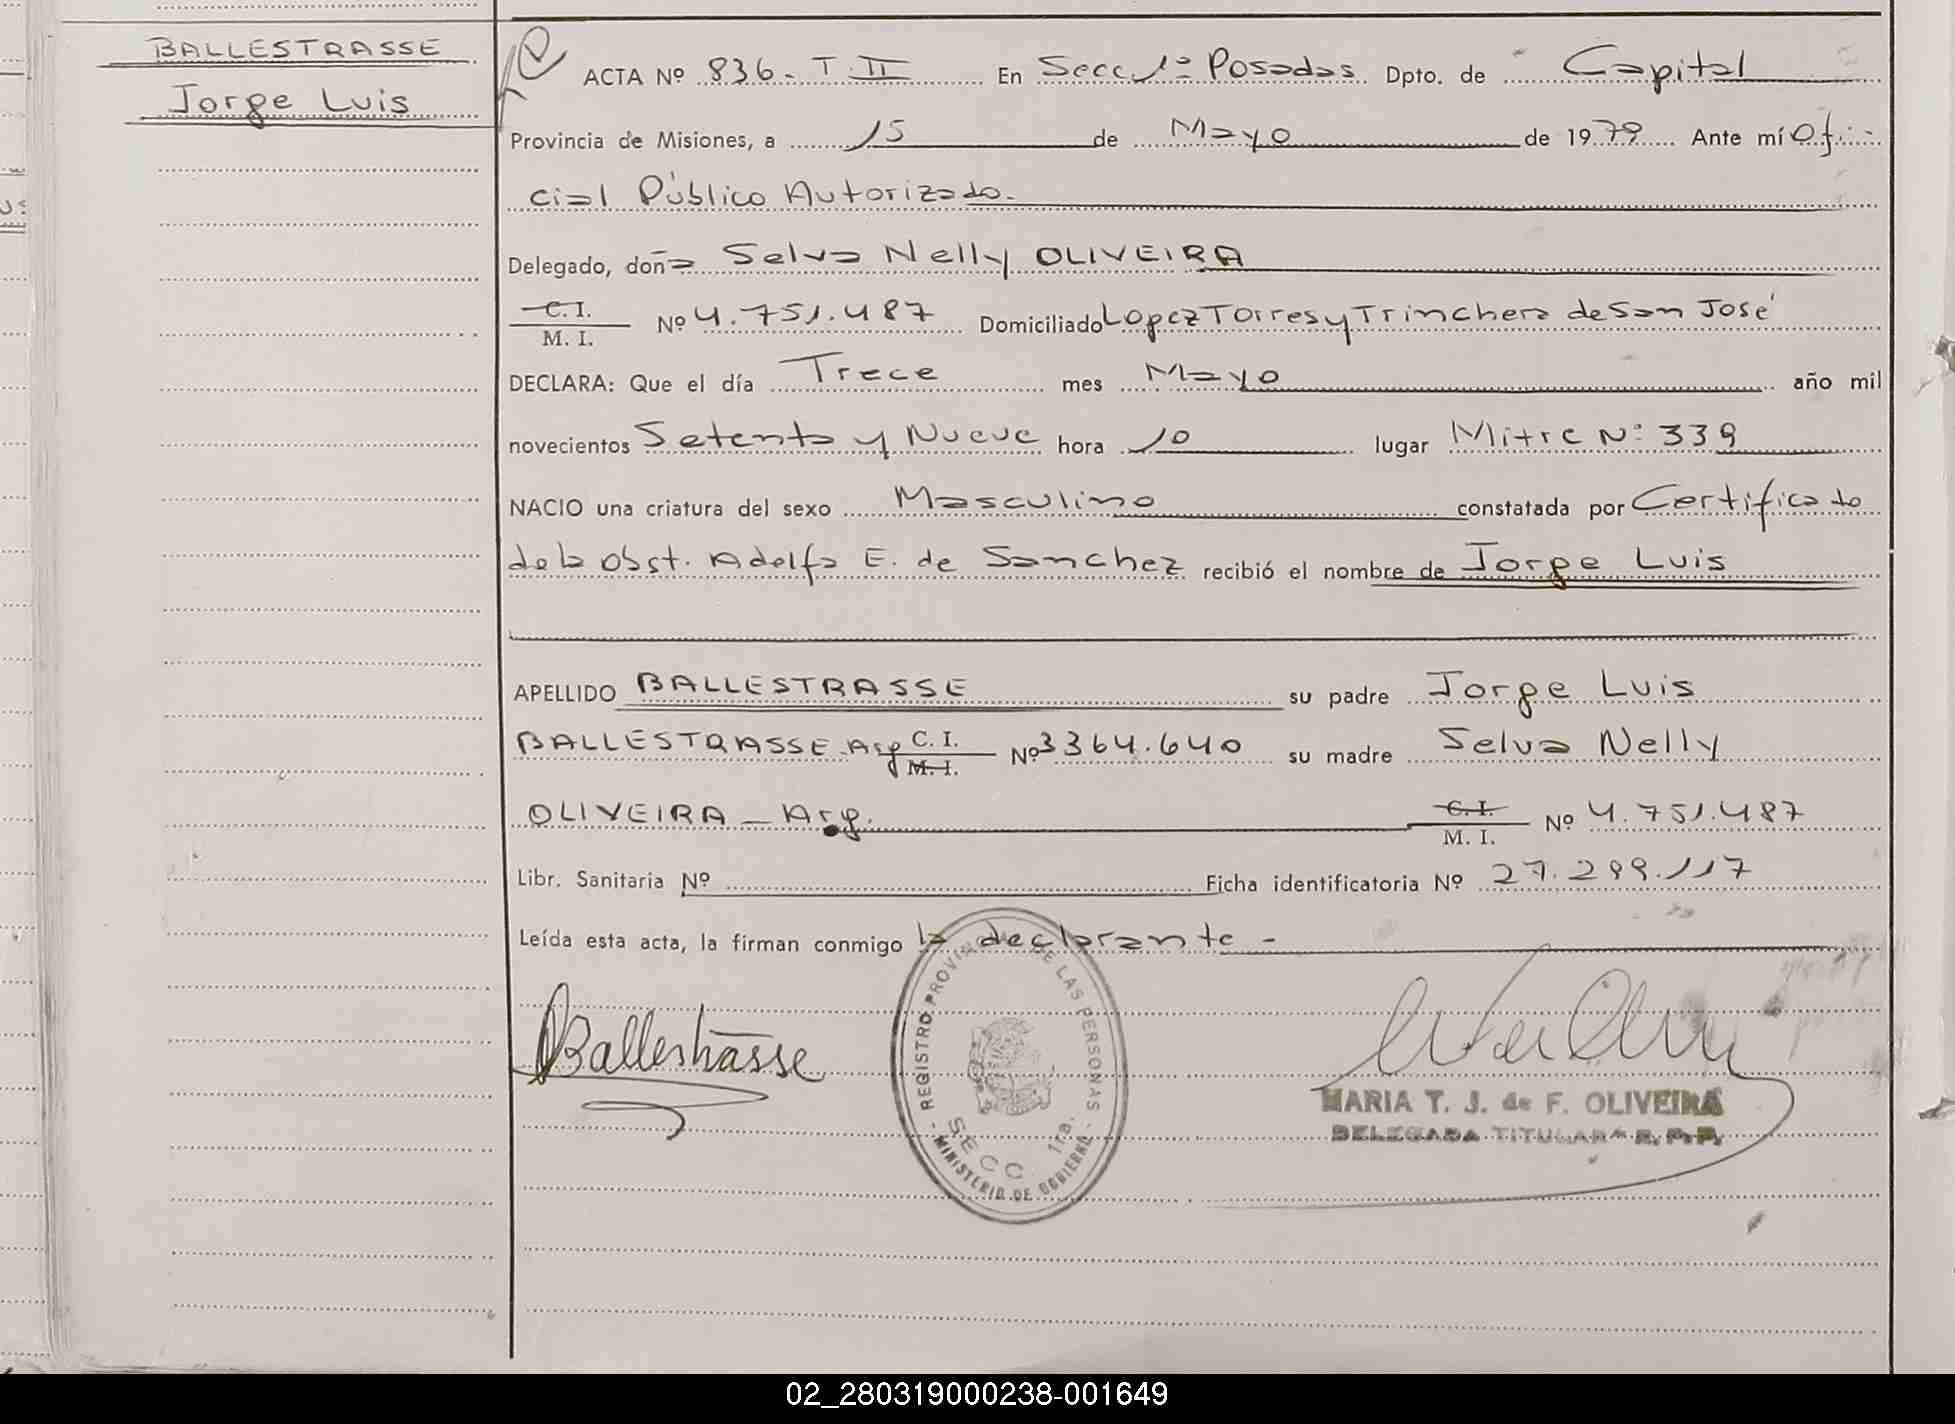 BALLESTRASSE
Jorge Luis
ACTA Nº 836 - T. II En Secc. 1ª Posadas Dpto. de Capital
Provincia de Misiones, a 15 de Mayo de 1979 Ante mí Ofi-
cial Público Autorizado.
Delegado, doña Selva Nelly OLIVEIRA
C. I.
M. I. Nº 4.751.487 Domiciliado Lopez Torres y Trinchera de San José
DECLARA: Que el día Trece mes Mayo año mil
novecientos Setenta y Nueve hora 10 lugar Mitre Nº 339
NACIO una criatura del sexo Masculino constatada por Certificado
de la Obst. Adelfa E. de Sanchez recibió el nombre de Jorge Luis
APELLIDO BALLESTRASSE su padre Jorge Luis
BALLESTRASSE Arg C. I. M. I. Nº 3364.640 su madre Selva Nelly
OLIVEIRA - Arg. C. I. M. I. Nº 4.751.487
Libr. Sanitaria Nº Ficha identificatoria Nº 27.299.117
Leída esta acta, la firman conmigo la declarante -
Ballestrasse
REGISTRO PROVINCIAL DE LAS PERSONAS
SECC. 1ra.
- MINISTERIO DE GOBIERNO -
MARIA T. J. de F. OLIVEIRA
DELEGADA TITULAR R. P. P.
02_280319000238-001649